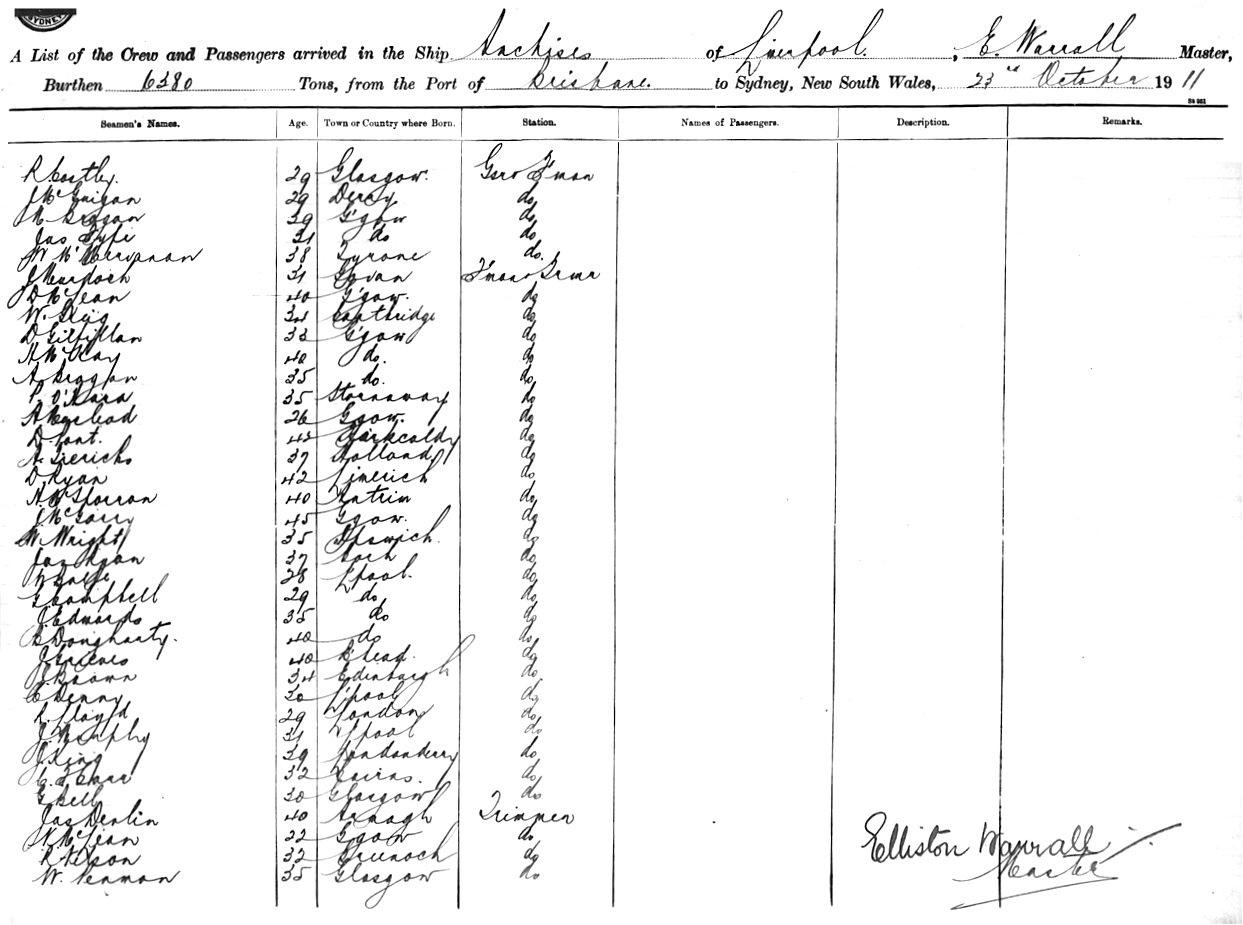 SYDNEY
A List of the Crew and Passengers arrived in the Ship Anchises of Liverpool, E. Warrall Master,
Burthen 6380 Tons, from the Port of Brisbane. to Sydney, New South Wales, 23rd October 1911
Seamen's Names. Age. Town or Country where Born. Station. Names of Passengers. Description. Remarks.
R Costley. 29 Glasgow.
J McGuigan 29 Derry do
M Brogan 39 G'gow do
Jas Fyfe 31 do do
W 38 Tyrone do.
J Murdoch 31 Govan
D McLean 40 G'gow. do
W. Greig 34 Coatbridge do
D Gilfillan 33 G'gow do
A McKay 40 do. do
A Brogan 35 do. do
P. O'Hara 35 Stornaway do
A Macleod 26 Ggow. do
D. 43 Kirkcaldy do
A. Dierichs 37 Holland do
D Ryan 42 Limerick do
A McSporran 40 Antrim do
J McGarry 45 Ggow. do
W Wright 35 Ipswich. do
Jas Ryan 37 Cork do
28 L'pool. do
Campbell 29 do do
J. Edwards 35 do do
Doughearty. 40 do do
J Greeves 40 B'head. do
J Brown 34 Edinburgh do
C Denny 30 L'pool do
R. Lloyd 29 London do
J. Murphy 31 L'pool do
J. King 39 Londonderry do
32 do
G Bell 30 Glasgow do
Jas Devlin 40 Armagh Trimmer
N. McLean 22 Ggow do
R Wilson 32 Greenock do
W. Penman 35 Glasgow do
Elliston Warrall
Master